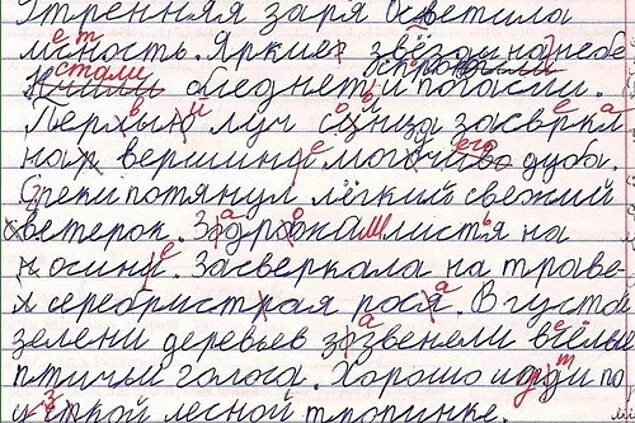 Утренняя заря осветила
месность. Яркие звёзды на небе
стали бледнет и погасли.
Первый луч сонца засверкал
на вершине могочего дуба.
С реки потянул лёгкий свежий
ветерок. Задрожал листья на
осине. Засверкала на траве
серебристая роса. В густой
зелени деревьев зазвенели весёлые
птичьи голоса. Хорошо идти по
узкой лесной тропинке.